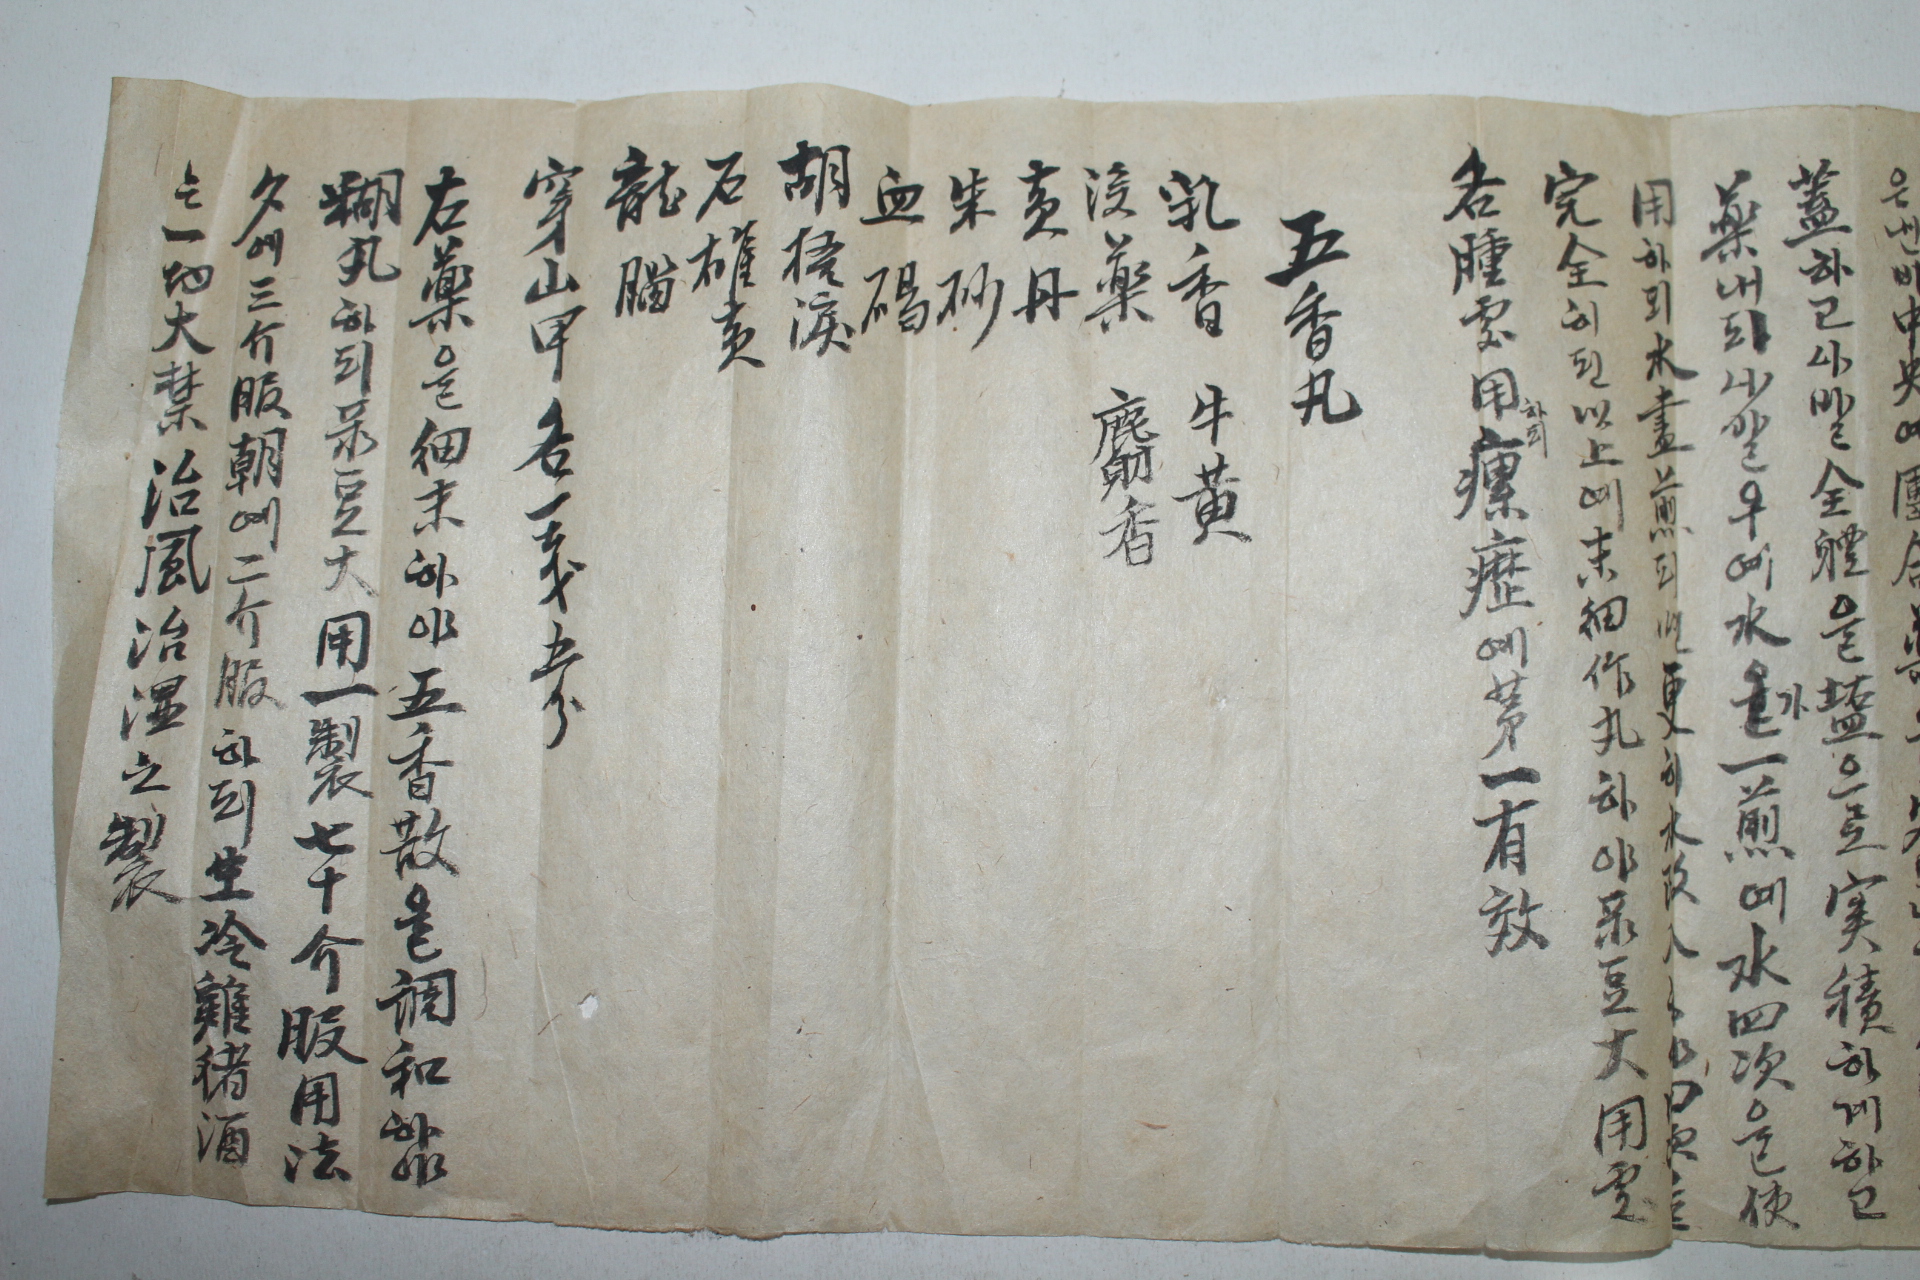 은 中央에 團合
蓋하고 사발 全體을 塩으로 実積하게 하고
藥내되 사발우에 水을가 一煎에 水四次을 使
用하되 水盡煎되면 更히 水
完全히 된 以上에 末細作丸하야 菉豆大 用処
各腫処用하되 瘰癧에 苐一有效
五香丸
乳香 牛黃
没藥 麝香
黃丹
朱砂
血碣
胡梧淚
石雄黃
龍腦
穿山甲 各一戔五分
右藥을 細末하야 五香散을 調和하야
糊丸하되 菉豆大 用一製七十介 服用法
夕에 三介服 朝에 二介服하되 生冷雞猪酒
는 一切大禁 治風治湿之製